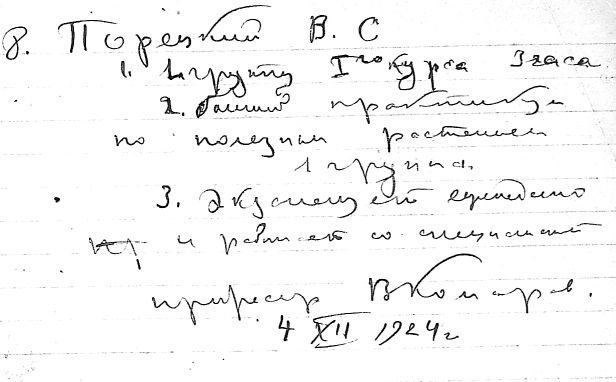 8. Порецкий В. С
1. 1 группу I го курса 3 часа
2. практикум
по полезным растениям
1 группа.
3. Экзаменует
и работает со специалист
профессор В Комаров.
4 XII 1924 г